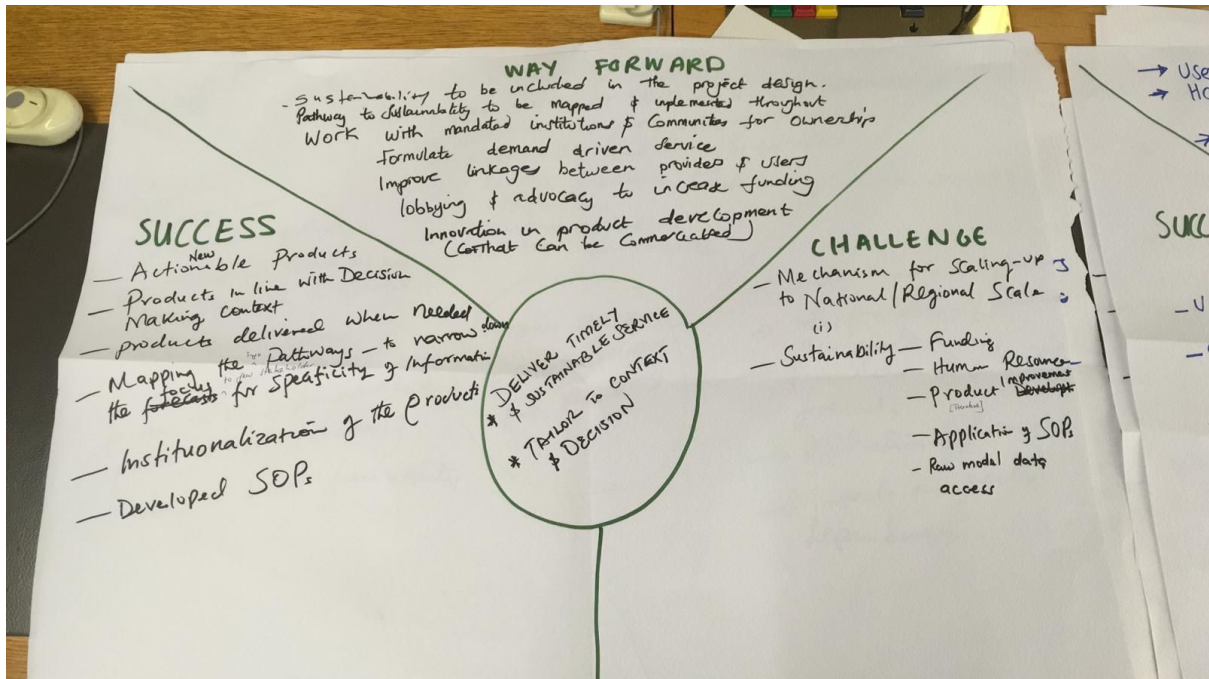 WAY FORWARD
- Sustainability to be included in the project design.
Pathway to sustainability to be mapped & implemented throughout
Work with mandated institutions & Communities for ownership
Formulate demand driven service
Improve linkages between provides & users
lobbying & advocacy to increase funding
Innovation in product development
(that can be Commercialised)
SUCCESS
New
— Actionable Products
— Products in line with Decision
Making context
— products delivered when needed
— Mapping the Pathways — to narrow down
the focus for specificity of Informatio
— Instituonalization of the products
— Developed SOPs
* DELIVER TIMELY
& SUSTAINABLE SERVICE
* TAILOR TO CONTEXT
& DECISION
CHALLENGE
— Mechanism for Scaling-up
to National/Regional Scale
(i)
— Sustainability — Funding
— Human Resources
— Product Improvement
— Application of SOPs
- Raw model data
access
→ Use
→ Ho
→
SUCC
- U